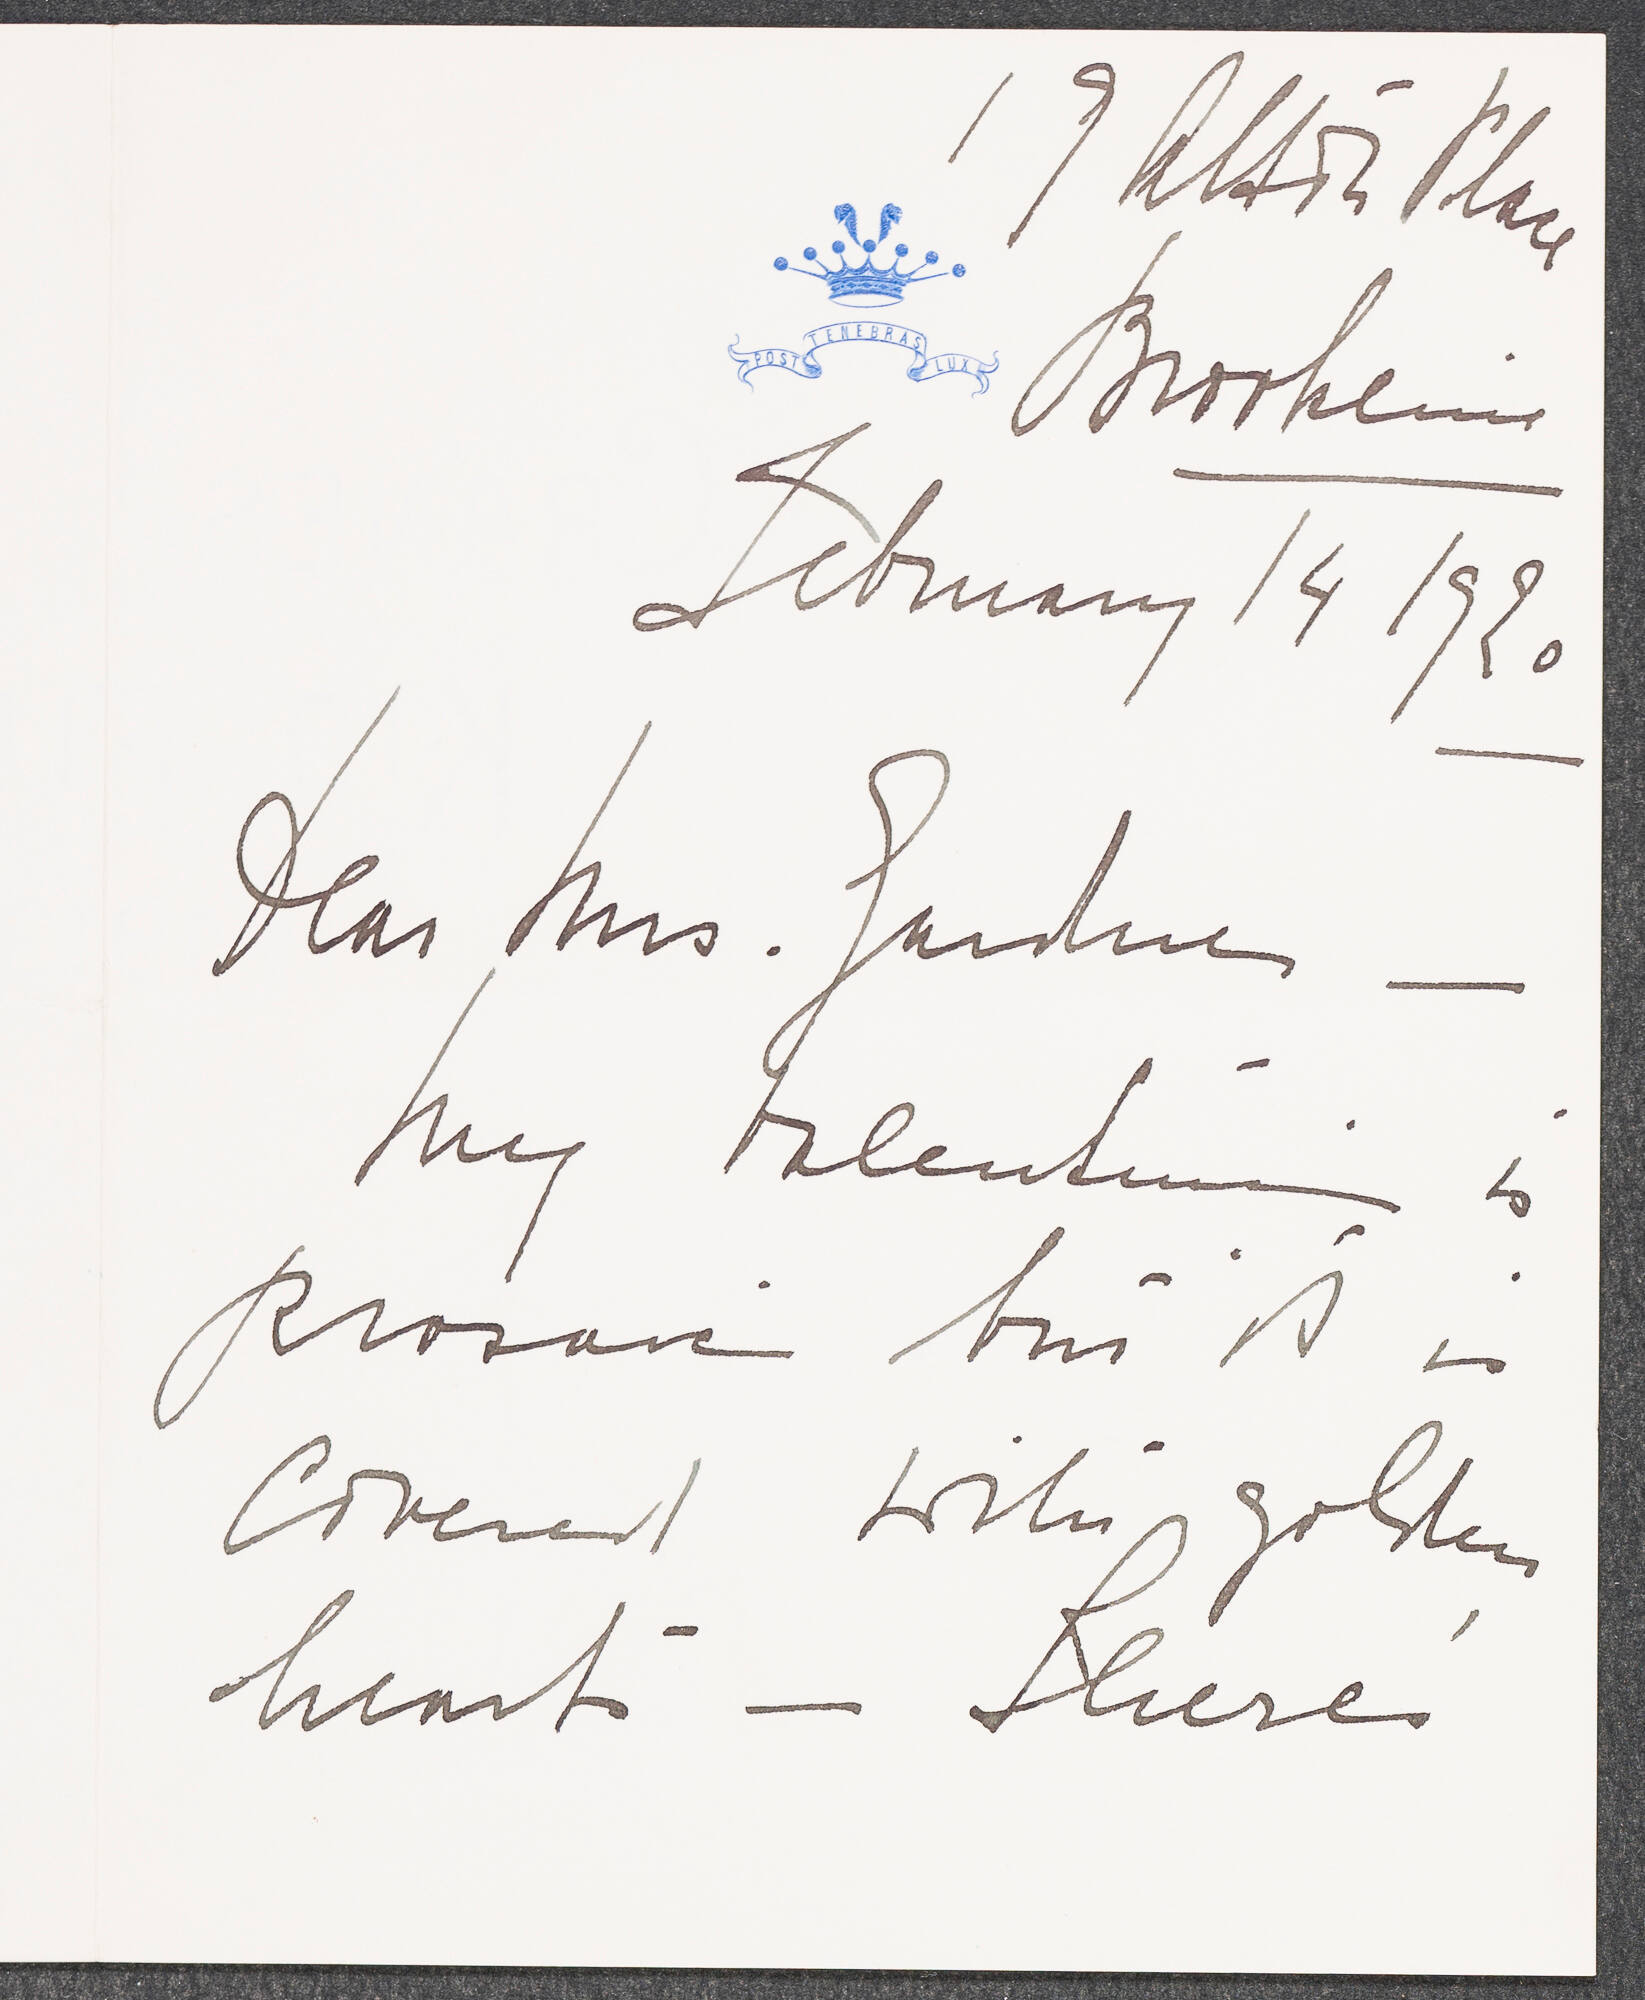 19 Alton Place
POST TENEBRAS LUX
Brookline
February 14 1920
Dear Mrs. Gardner —
My Valentine is
prosaic but it is
covered with golden
hearts — There's